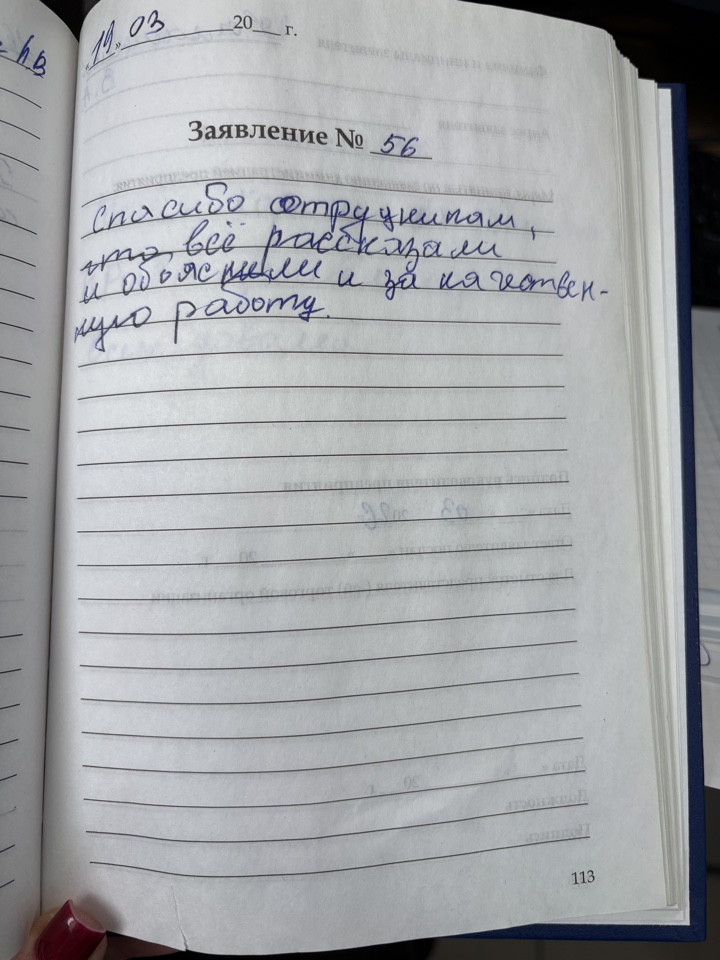 «19» 03 20__ г.
Заявление № 56
Спасибо сотрудникам,
что всё рассказали
и обояснили и за качествен-
ную работу.
113